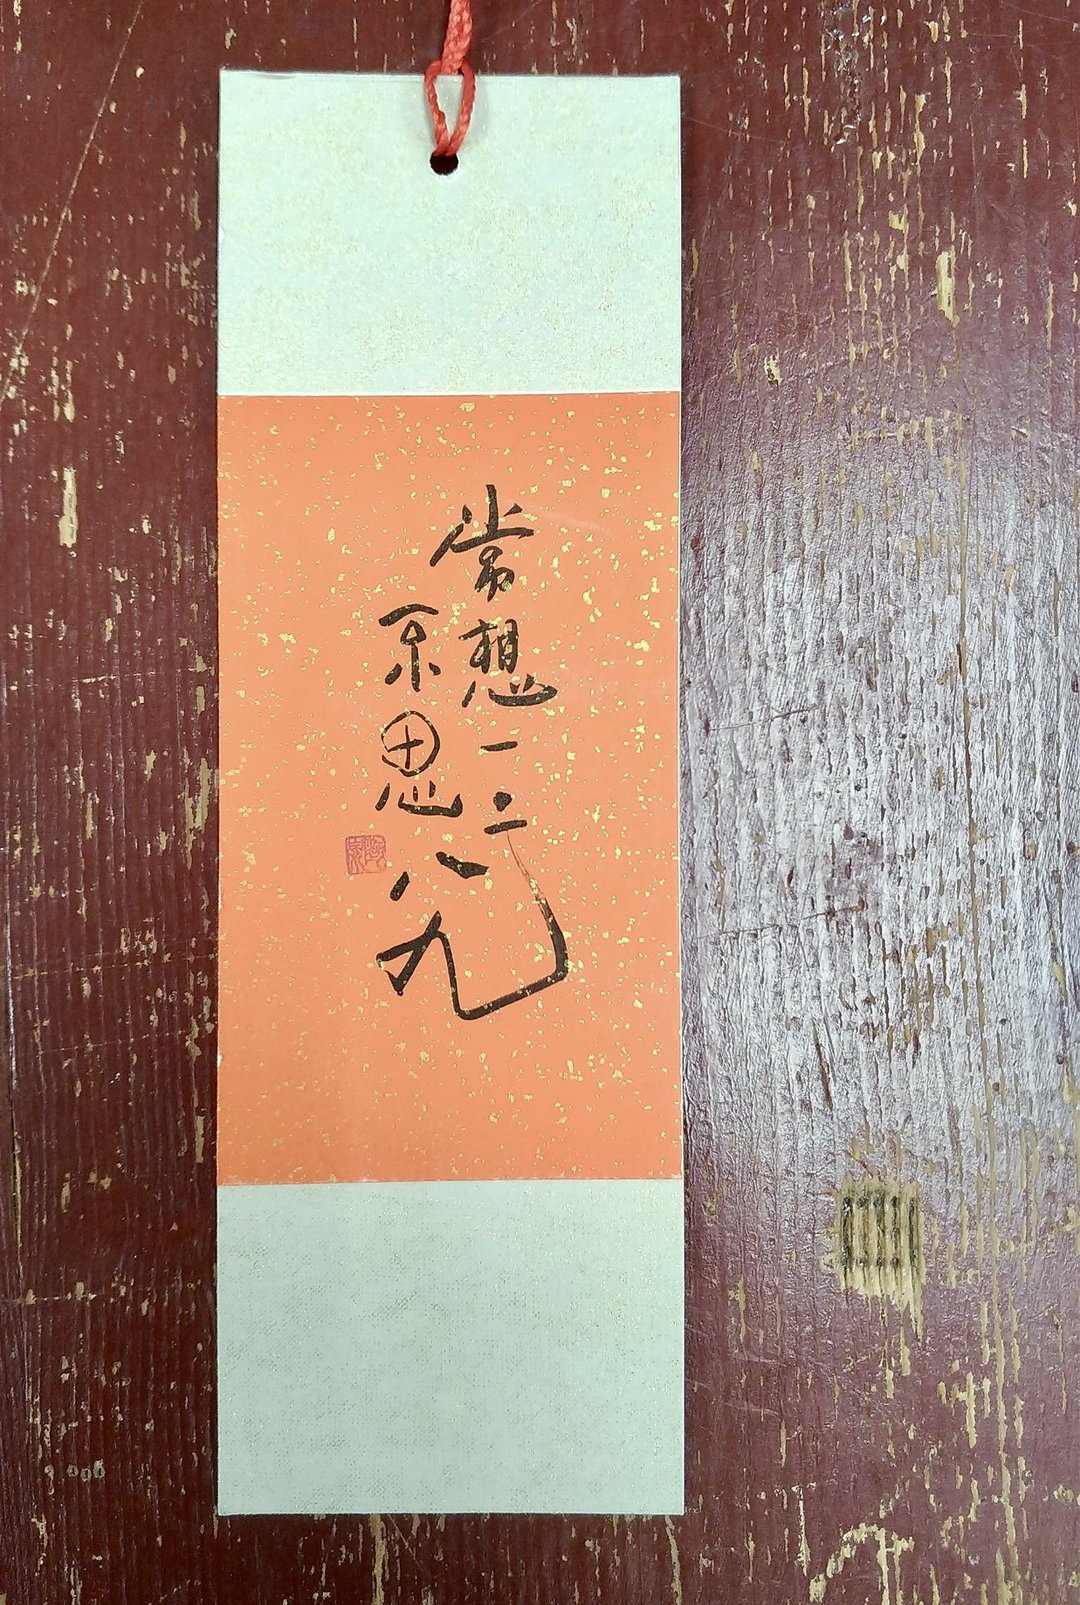 常想一二
不思八九